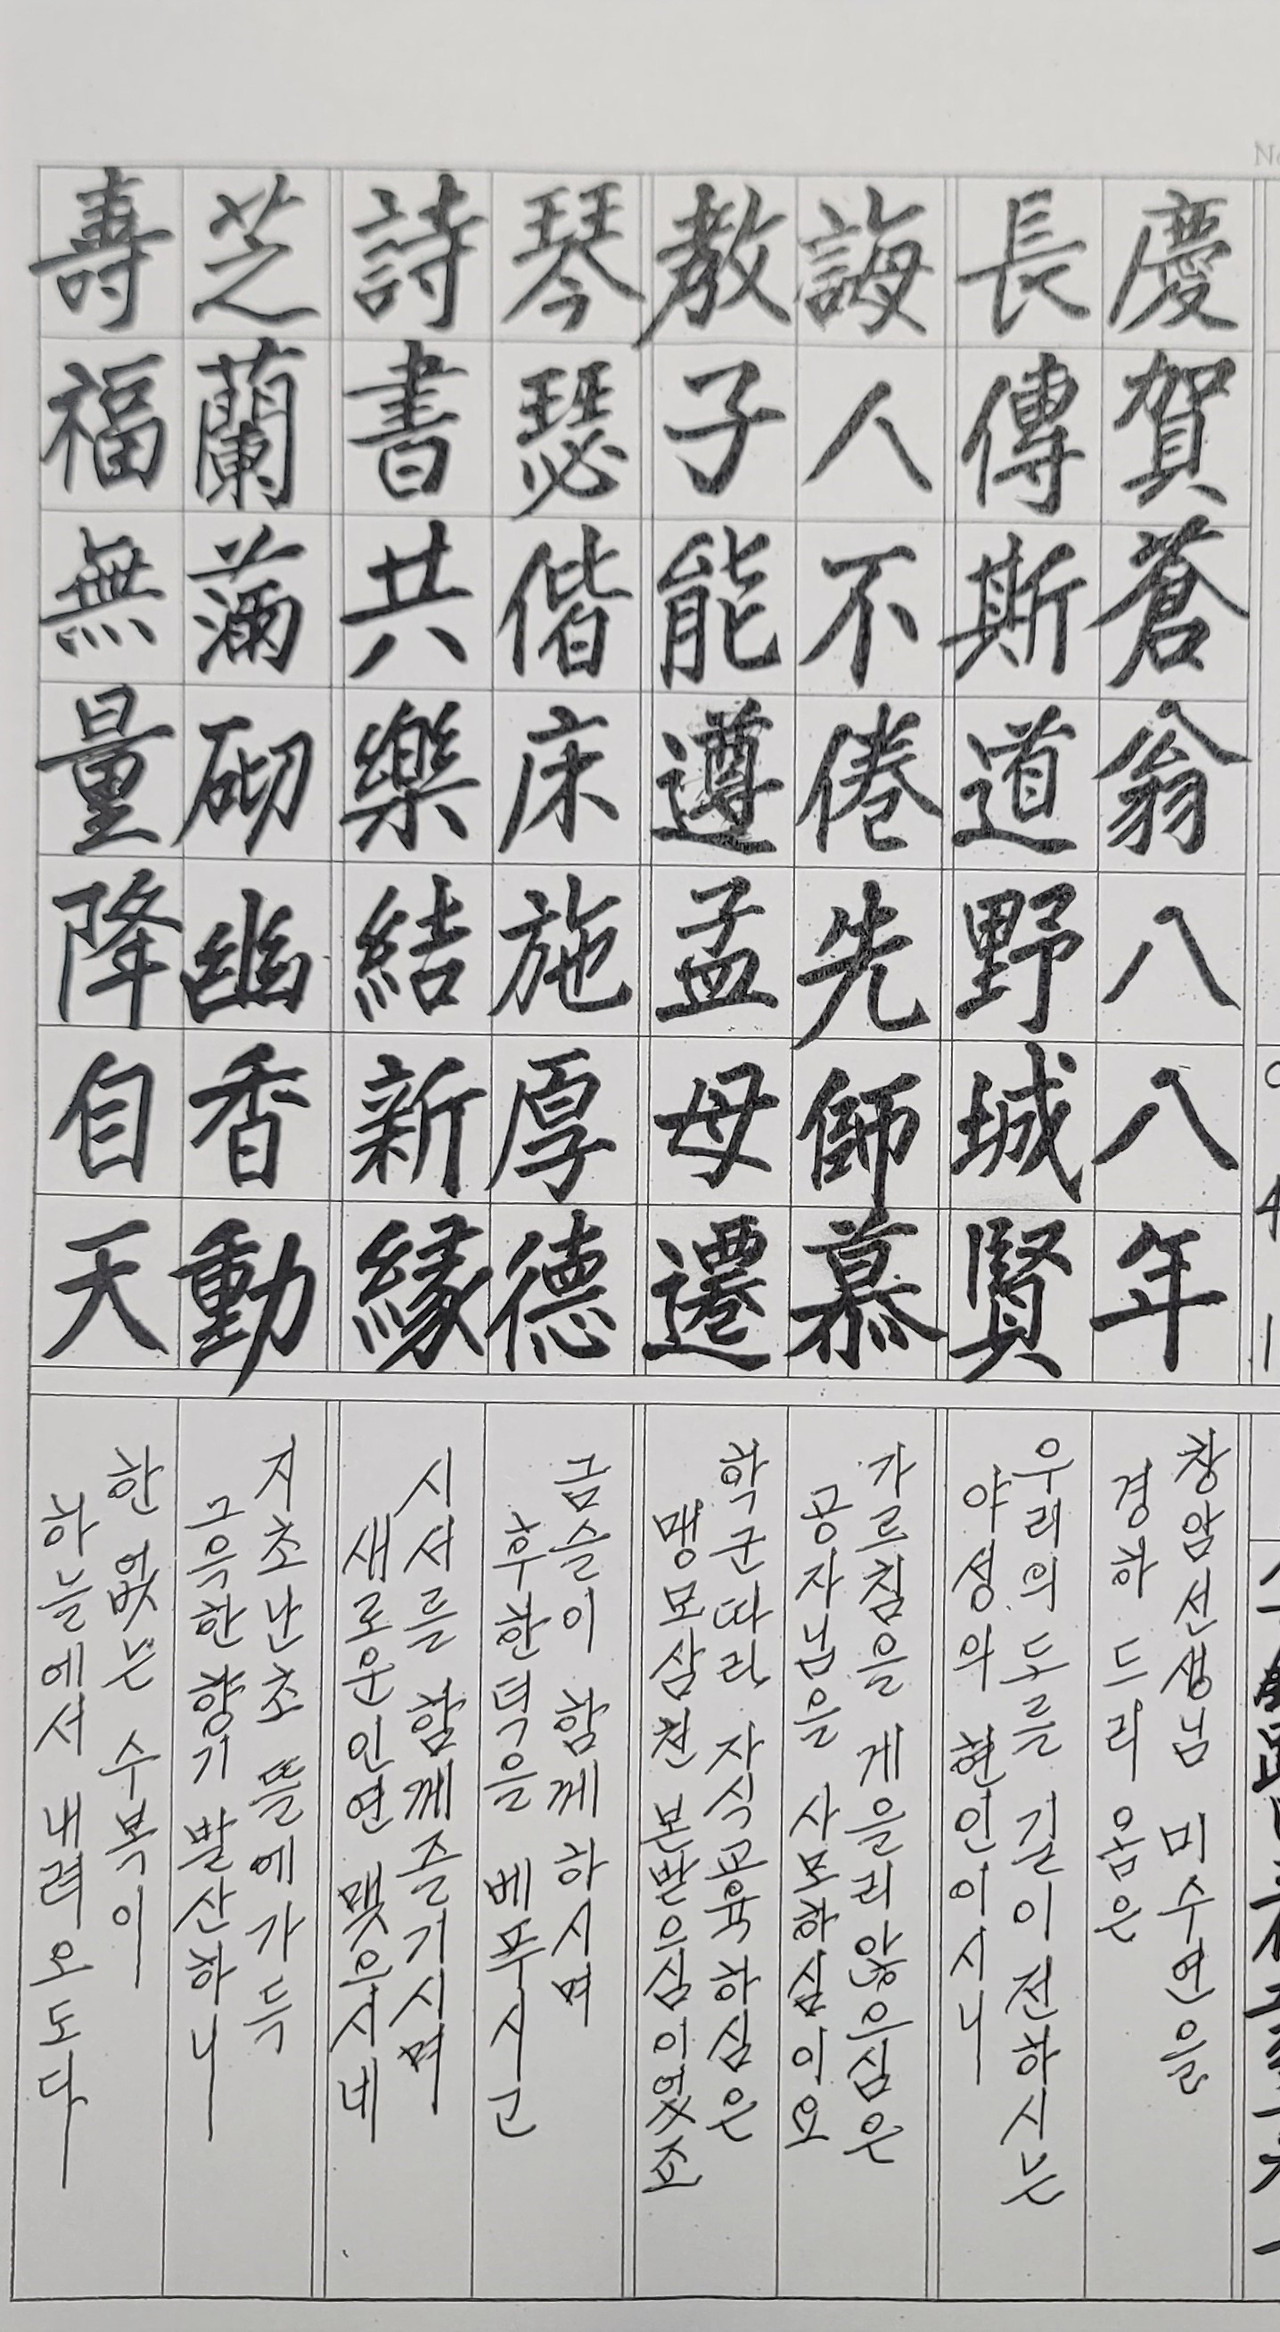 慶賀蒼翁八八年
長傳斯道野城賢
誨人不倦先師慕
教子能遵孟母遷
琴瑟偕床施厚德
詩書共樂結新緣
芝蘭滿砌幽香動
壽福無量降自天
창암선생님 미수연을
경하 드리옴은
우리의 도를 길이 전하시는
야성의 현인이시니
가르침을 게을리 않으심은
공자님을 사모하심이요
학군따라 자식교육하심은
맹모삼천 본받으심이었죠
금슬이 함께하시며
후한덕을 베푸시고
시서를 함께즐기시며
새로운인연 맺으시네
지초난초 뜰에가득
그윽한향기 발산하니
한없는 수복이
하늘에서 내려오도다